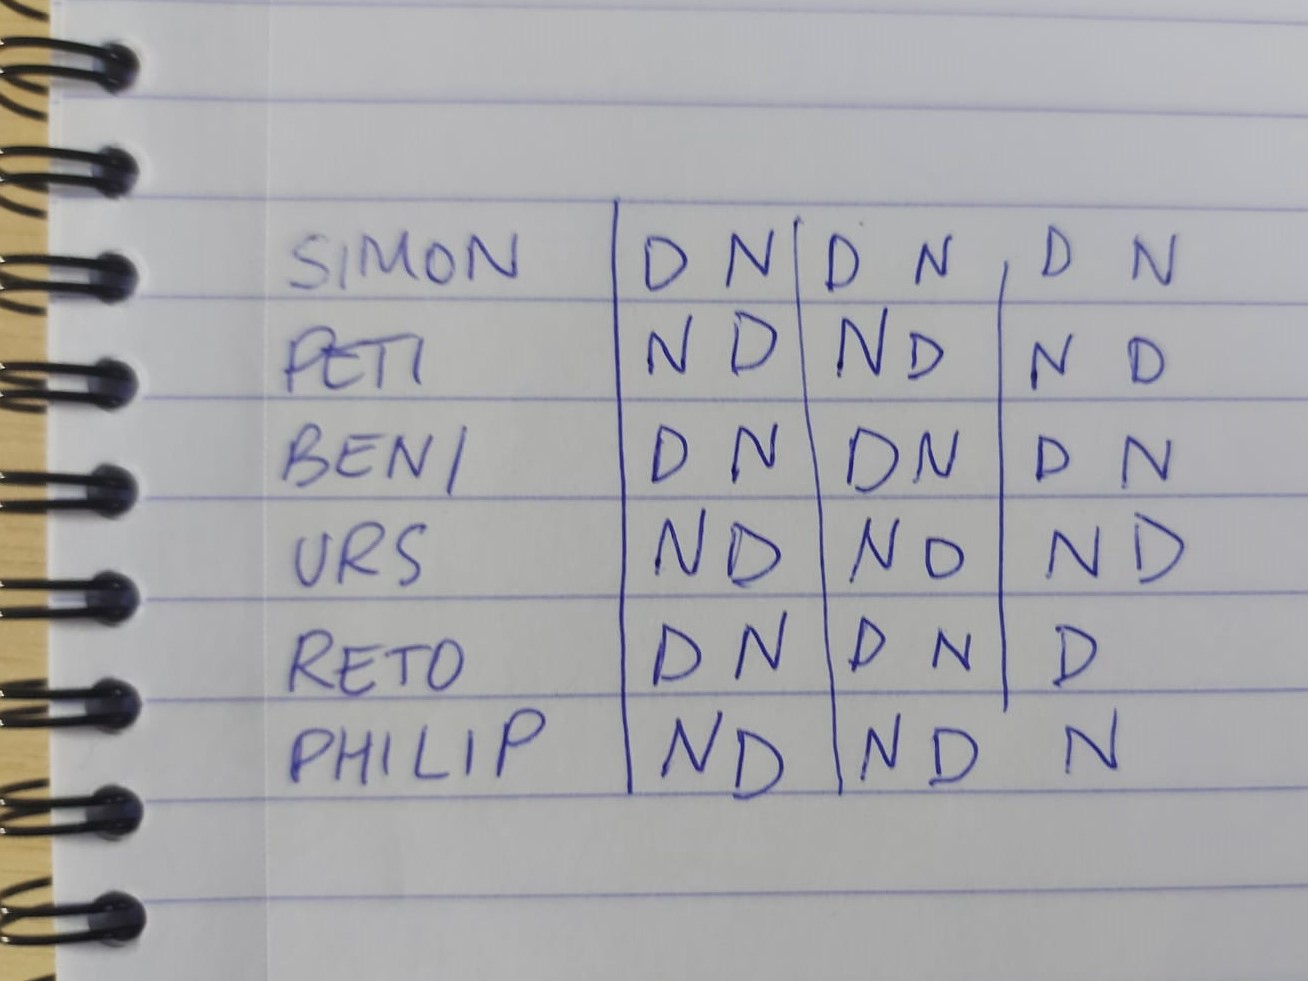 SIMON D N D N D N
PETI N D N D N D
BENI D N D N D N
URS N D N D N D
RETO D N D N D
PHILIP N D N D N